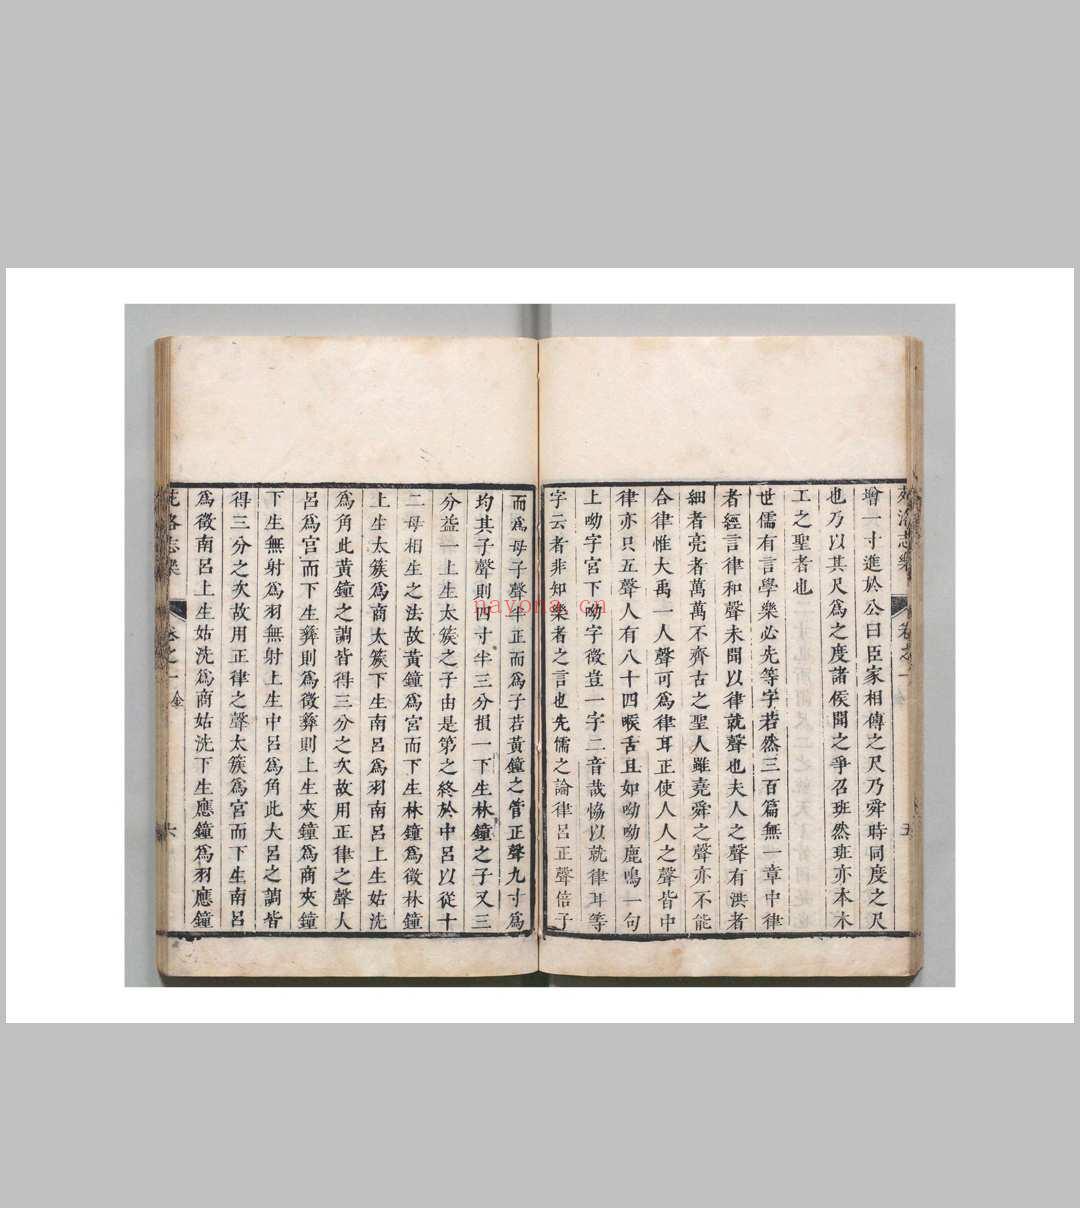 苑洛志樂 卷之一 五
增一寸進於公曰臣家相傳之尺乃舜時同度之尺
也乃以其尺爲之度諸侯聞之爭召班然班亦本木
工之聖者也
世儒有言學樂必先等字若然三百篇無一章中律
者經言律和聲未聞以律就聲也夫人之聲有洪者
細者亮者萬萬不齊古之聖人雖堯舜之聲亦不能
合律惟大禹一人聲可爲律耳正使人人之聲皆中
律亦只五聲人有八十四喉舌且如呦呦鹿鳴一句
上呦字宮下呦字徵豈一字二音哉恊以就律耳等
字云者非知樂者之言也先儒之論律呂正聲倍子
而爲母子聲半正而爲子若黃鐘之管正聲九寸爲
均其子聲則四寸半三分損一下生林鐘之子又三
分益一上生太簇之子由是第之終於中呂以從十
二母相生之法故黃鐘爲宮而下生林鐘爲徵林鐘
上生太簇爲商太簇下生南呂爲羽南呂上生姑洗
爲角此黃鐘之調皆得三分之次故用正律之聲人
呂爲宮而下生彞則爲徵彞則上生夾鐘爲商夾鐘
下生無射爲羽無射上生中呂爲角此大呂之調皆
得三分之次故用正律之聲太簇爲宮而下生南呂
爲徵南呂上生姑洗爲商姑洗下生應鐘爲羽應鐘
苑洛志樂 卷之一 金 六
nayona.cn